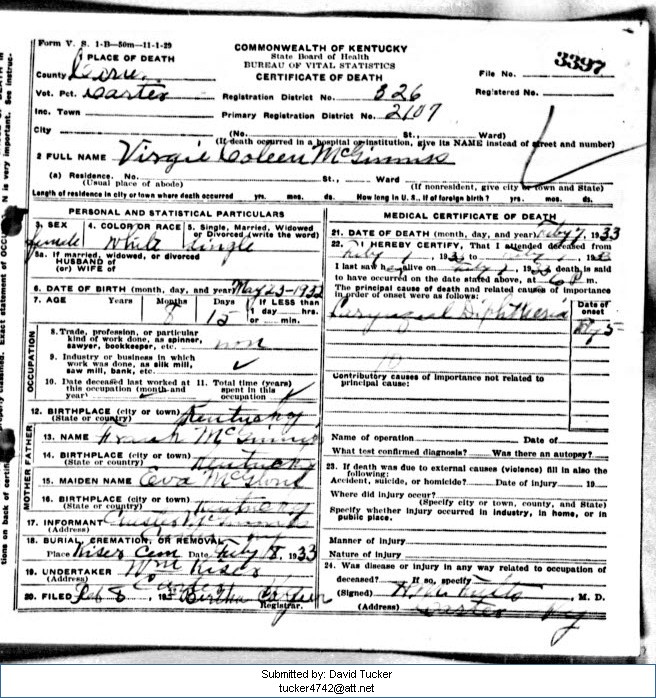 Form V. S. 1-B—50m—11-1-29
COMMONWEALTH OF KENTUCKY
State Board of Health
BUREAU OF VITAL STATISTICS
CERTIFICATE OF DEATH
File No. 3397
Registered No.
1 PLACE OF DEATH
County
Vot. Pct. Carter
Registration District No. 326
Inc. Town
Primary Registration District No. 2107
City (No. St., Ward)
(If death occurred in a hospital or institution, give its NAME instead of street and number)
2 FULL NAME Virgie Coleen McGinnis
(a) Residence. No. St., Ward
(Usual place of abode) (If nonresident, give city or town and State)
Length of residence in city or town where death occurred yrs. mos. ds. How long in U. S., if of foreign birth? yrs. mos. ds.
PERSONAL AND STATISTICAL PARTICULARS
3. SEX 4. COLOR OR RACE 5. Single, Married, Widowed or Divorced (write the word)
female White single
5a. If married, widowed, or divorced
HUSBAND of
(or) WIFE of
6. DATE OF BIRTH (month, day, and year) May 23-1932
7. AGE Years Months Days If LESS than
8 15 1 day hrs.
or min.
OCCUPATION
8. Trade, profession, or particular
kind of work done, as spinner,
sawyer, bookkeeper, etc. non
9. Industry or business in which
work was done, as silk mill,
saw mill, bank, etc.
10. Date deceased last worked at
this occupation (month and
year)
11. Total time (years)
spent in this
occupation
12. BIRTHPLACE (city or town) Kentucky
(State or country)
FATHER
13. NAME McGinnis
14. BIRTHPLACE (city or town) Kentucky
(State or country)
MOTHER
15. MAIDEN NAME Eva McGlone
16. BIRTHPLACE (city or town) Kentucky
(State or country)
17. INFORMANT McGinnis
(Address)
18. BURIAL, CREMATION, OR REMOVAL
Place Kiser Cem Date Feby 8, 1933
19. UNDERTAKER Wm Kiser
(Address) Carter Ky
20. FILED Feb 8, 193 Bertha
Registrar.
MEDICAL CERTIFICATE OF DEATH
21. DATE OF DEATH (month, day, and year) Feby 7, 1933
22. I HEREBY CERTIFY, That I attended deceased from
, 193 to , 193
I last saw h alive on , 193 death is said
to have occurred on the date stated above, at 6 P m.
The principal cause of death and related causes of importance
in order of onset were as follows:
Date of
onset
Laryngeal Diphtheria 5
Contributory causes of importance not related to
principal cause:
Name of operation Date of
What test confirmed diagnosis? Was there an autopsy?
23. If death was due to external causes (violence) fill in also the
following:
Accident, suicide, or homicide? Date of injury 19
Where did injury occur?
(Specify city or town, county, and State)
Specify whether injury occurred in industry, in home, or in
public place.
Manner of injury
Nature of injury
24. Was disease or injury in any way related to occupation of
deceased? If so, specify
(Signed) , M. D.
(Address) Carter Ky
Submitted by: David Tucker
tucker4742@att.net